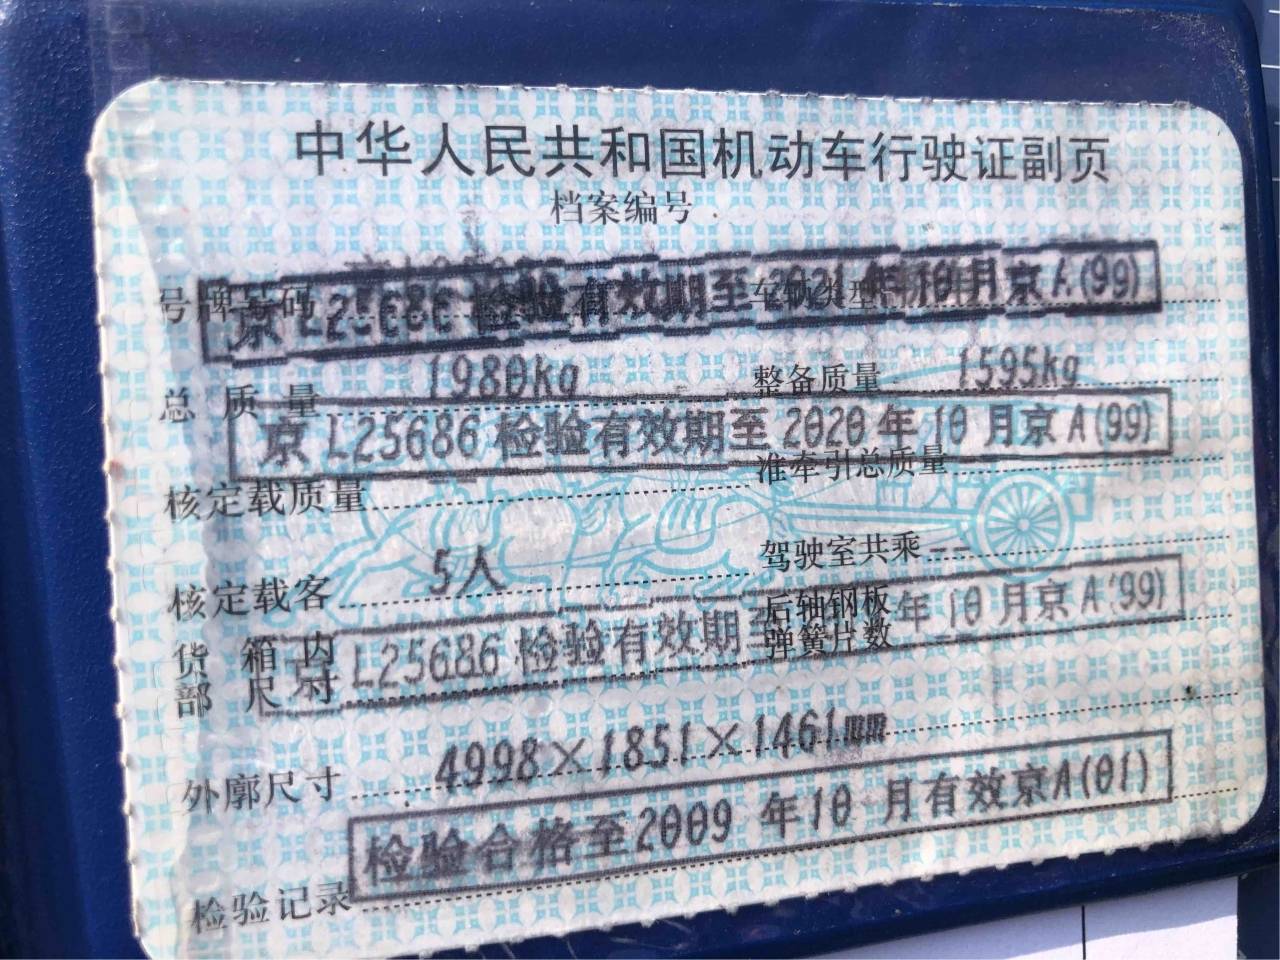 中华人民共和国机动车行驶证副页
档案编号
号牌号码 车辆类型
京L25686 检验有效期至2021年10月京A(99)
总质量 1980kg 整备质量 1595kg
京L25686 检验有效期至2020年10月京A(99)
核定载质量 准牵引总质量
核定载客 5人 驾驶室共乘 --
货箱内部尺寸 后轴钢板弹簧片数
京L25686 检验有效期至 年10月京A(99)
外廓尺寸 4998×1851×1461mm
检验合格至2009年10月有效京A(01)
检验记录